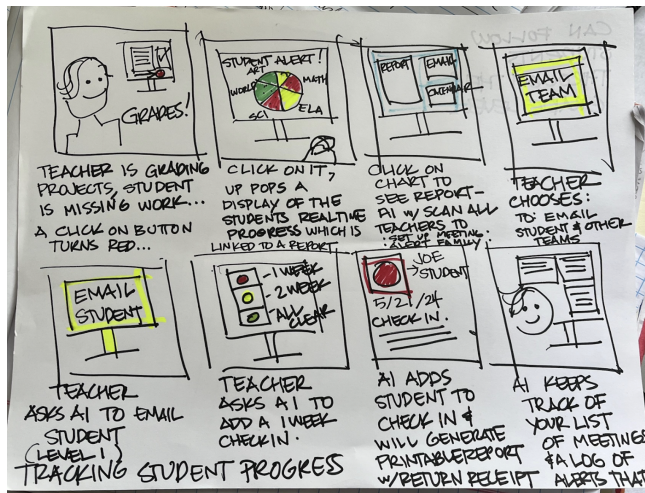 GRADES!
TEACHER IS GRADING
PROJECTS, STUDENT
IS MISSING WORK...
A CLICK ON BUTTON
TURNS RED...
STUDENT ALERT!
ART
WORLD
MATH
SCI
ELA
CLICK ON IT,
UP POPS A
DISPLAY OF THE
STUDENTS REALTIME
PROGRESS WHICH IS
LINKED TO A REPORT
REPORT
EMAIL
CALENDAR
CLICK ON
CHART TO
SEE REPORT-
AI W/ SCAN ALL
TEACHERS TO
SET UP MEETING.
ALERT FAMILY
EMAIL
TEAM
TEACHER
CHOOSES:
TO: EMAIL
STUDENT & OTHER
TEAMS
EMAIL
STUDENT
TEACHER
ASKS AI TO EMAIL
STUDENT
(LEVEL 1)
- 1 WEEK
- 2 WEEK
- ALL
CLEAR
TEACHER
ASKS AI TO
ADD A 1 WEEK
CHECK IN.
JOE
STUDENT
/24
CHECK IN.
AI ADDS
STUDENT TO
CHECK IN &
WILL GENERATE
PRINTABLE REPORT
W/ RETURN RECEIPT
AI KEEPS
TRACK OF
YOUR LIST
OF MEETINGS
& A LOG OF
ALERTS THAT
TRACKING STUDENT PROGRESS